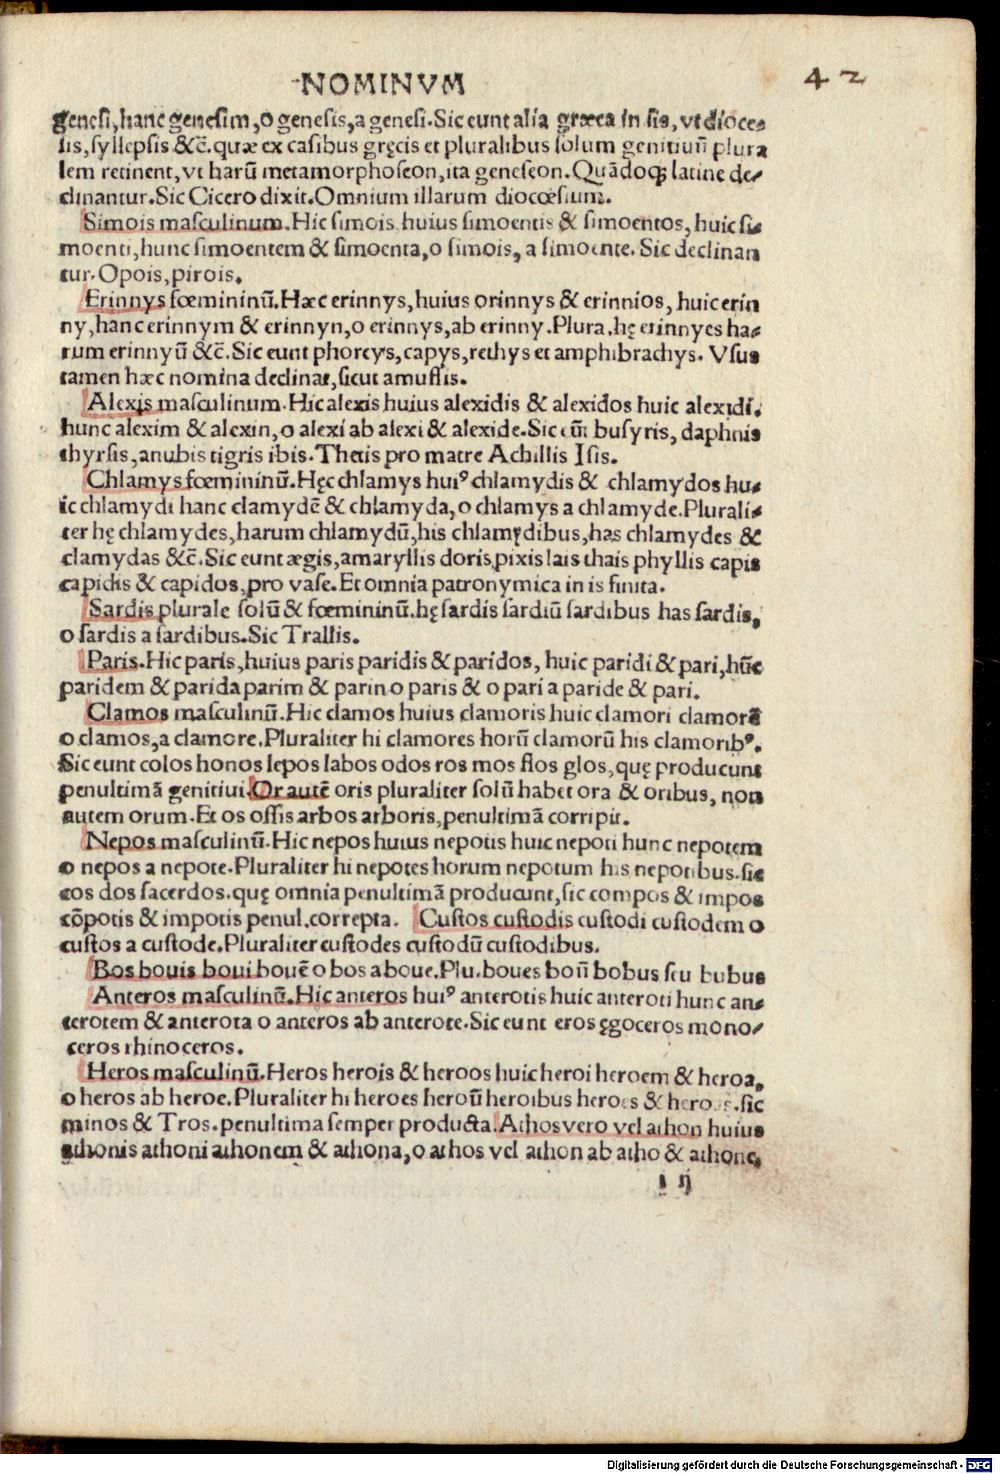 NOMINVM
42
genesi, hanc genesim, o genesis, a genesi. Sic eunt alia græca in sis, vt dioce-
sis, syllepsis &c̄. quæ ex casibus gręcis et pluralibus solum genitiuū plura
lem retinent, vt harū metamorphoseon, ita geneseon. Quādoq; latine de-
clinantur. Sic Cicero dixit. Omnium illarum diocœsium.
Simois masculinum. Hic simois huius simoentis & simoentos, huic si-
moenti, hunc simoentem & simoenta, o simois, a simoente. Sic declinan
tur. Opois, pirois.
Erinnys fœmininū. Hæc erinnys, huius orinnys & erinnios, huic erin
ny, hanc erinnym & erinnyn, o erinnys, ab erinny. Plura. hę erinnyes ha-
rum erinnyū &c̄. Sic eunt phorcys, capys, rethys et amphibrachys. Vsus
tamen hæc nomina declinat, sicut amussis.
Alexis masculinum. Hic alexis huius alexidis & alexidos huic alexidi.
hunc alexim & alexin, o alexi ab alexi & alexide. Sic eūt busyris, daphnis
thyrsis, anubis tigris ibis. Thetis pro matre Achillis Isis.
Chlamys fœmininū. Hęc chlamys huiꝰ chlamydis & chlamydos hu-
ic chlamydi hanc clamydē & chlamyda, o chlamys a chlamyde. Plurali-
ter hę chlamydes, harum chlamydū, his chlamydibus, has chlamydes &
clamydas &c̄. Sic eunt ægis, amaryllis doris, pixis lais thais phyllis capis
capidis & capidos, pro vase. Et omnia patronymica in is finita.
Sardis plurale solū & fœmininū. hę sardis sardiū sardibus has sardis,
o sardis a sardibus. Sic Trallis.
Paris. Hic paris, huius paris paridis & paridos, huic paridi & pari, hūc
paridem & parida parim & parin o paris & o pari a paride & pari.
Clamos masculinū. Hic clamos huius clamoris huic clamori clamorē
o clamos, a clamore. Pluraliter hi clamores horū clamorū his clamoribꝰ.
Sic eunt colos honos lepos labos odos ros mos flos glos, quę producunt
penultimā genitiui. Or autē oris pluraliter solū habet ora & oribus, non
autem orum. Et os ossis arbos arboris, penultimā corripit.
Nepos masculinū. Hic nepos huius nepotis huic nepoti hunc nepotem
o nepos a nepote. Pluraliter hi nepotes horum nepotum his nepotibus. sic
cos dos sacerdos. quę omnia penultimā producunt, sic compos & impos
cōpotis & impotis penul. correpta. Custos custodis custodi custodem o
custos a custode. Pluraliter custodes custodū custodibus.
Bos bouis boui bouē o bos a boue. Plu. boues boū bobus seu bubus
Anteros masculinū. Hic anteros huiꝰ anterotis huic anteroti hunc an-
terotem & anterota o anteros ab anterote. Sic eunt eros ęgoceros mono-
ceros rhinoceros.
Heros masculinū. Heros herois & heroos huic heroi heroem & heroa,
o heros ab heroe. Pluraliter hi heroes heroū heroibus heroes & heroas. sic
minos & Tros. penultima semper producta. Athos vero vel athon huius
athonis athoni athonem & athona, o athos vel athon ab atho & athone,
Digitalisierung gefördert durch die Deutsche Forschungsgemeinschaft - DFG